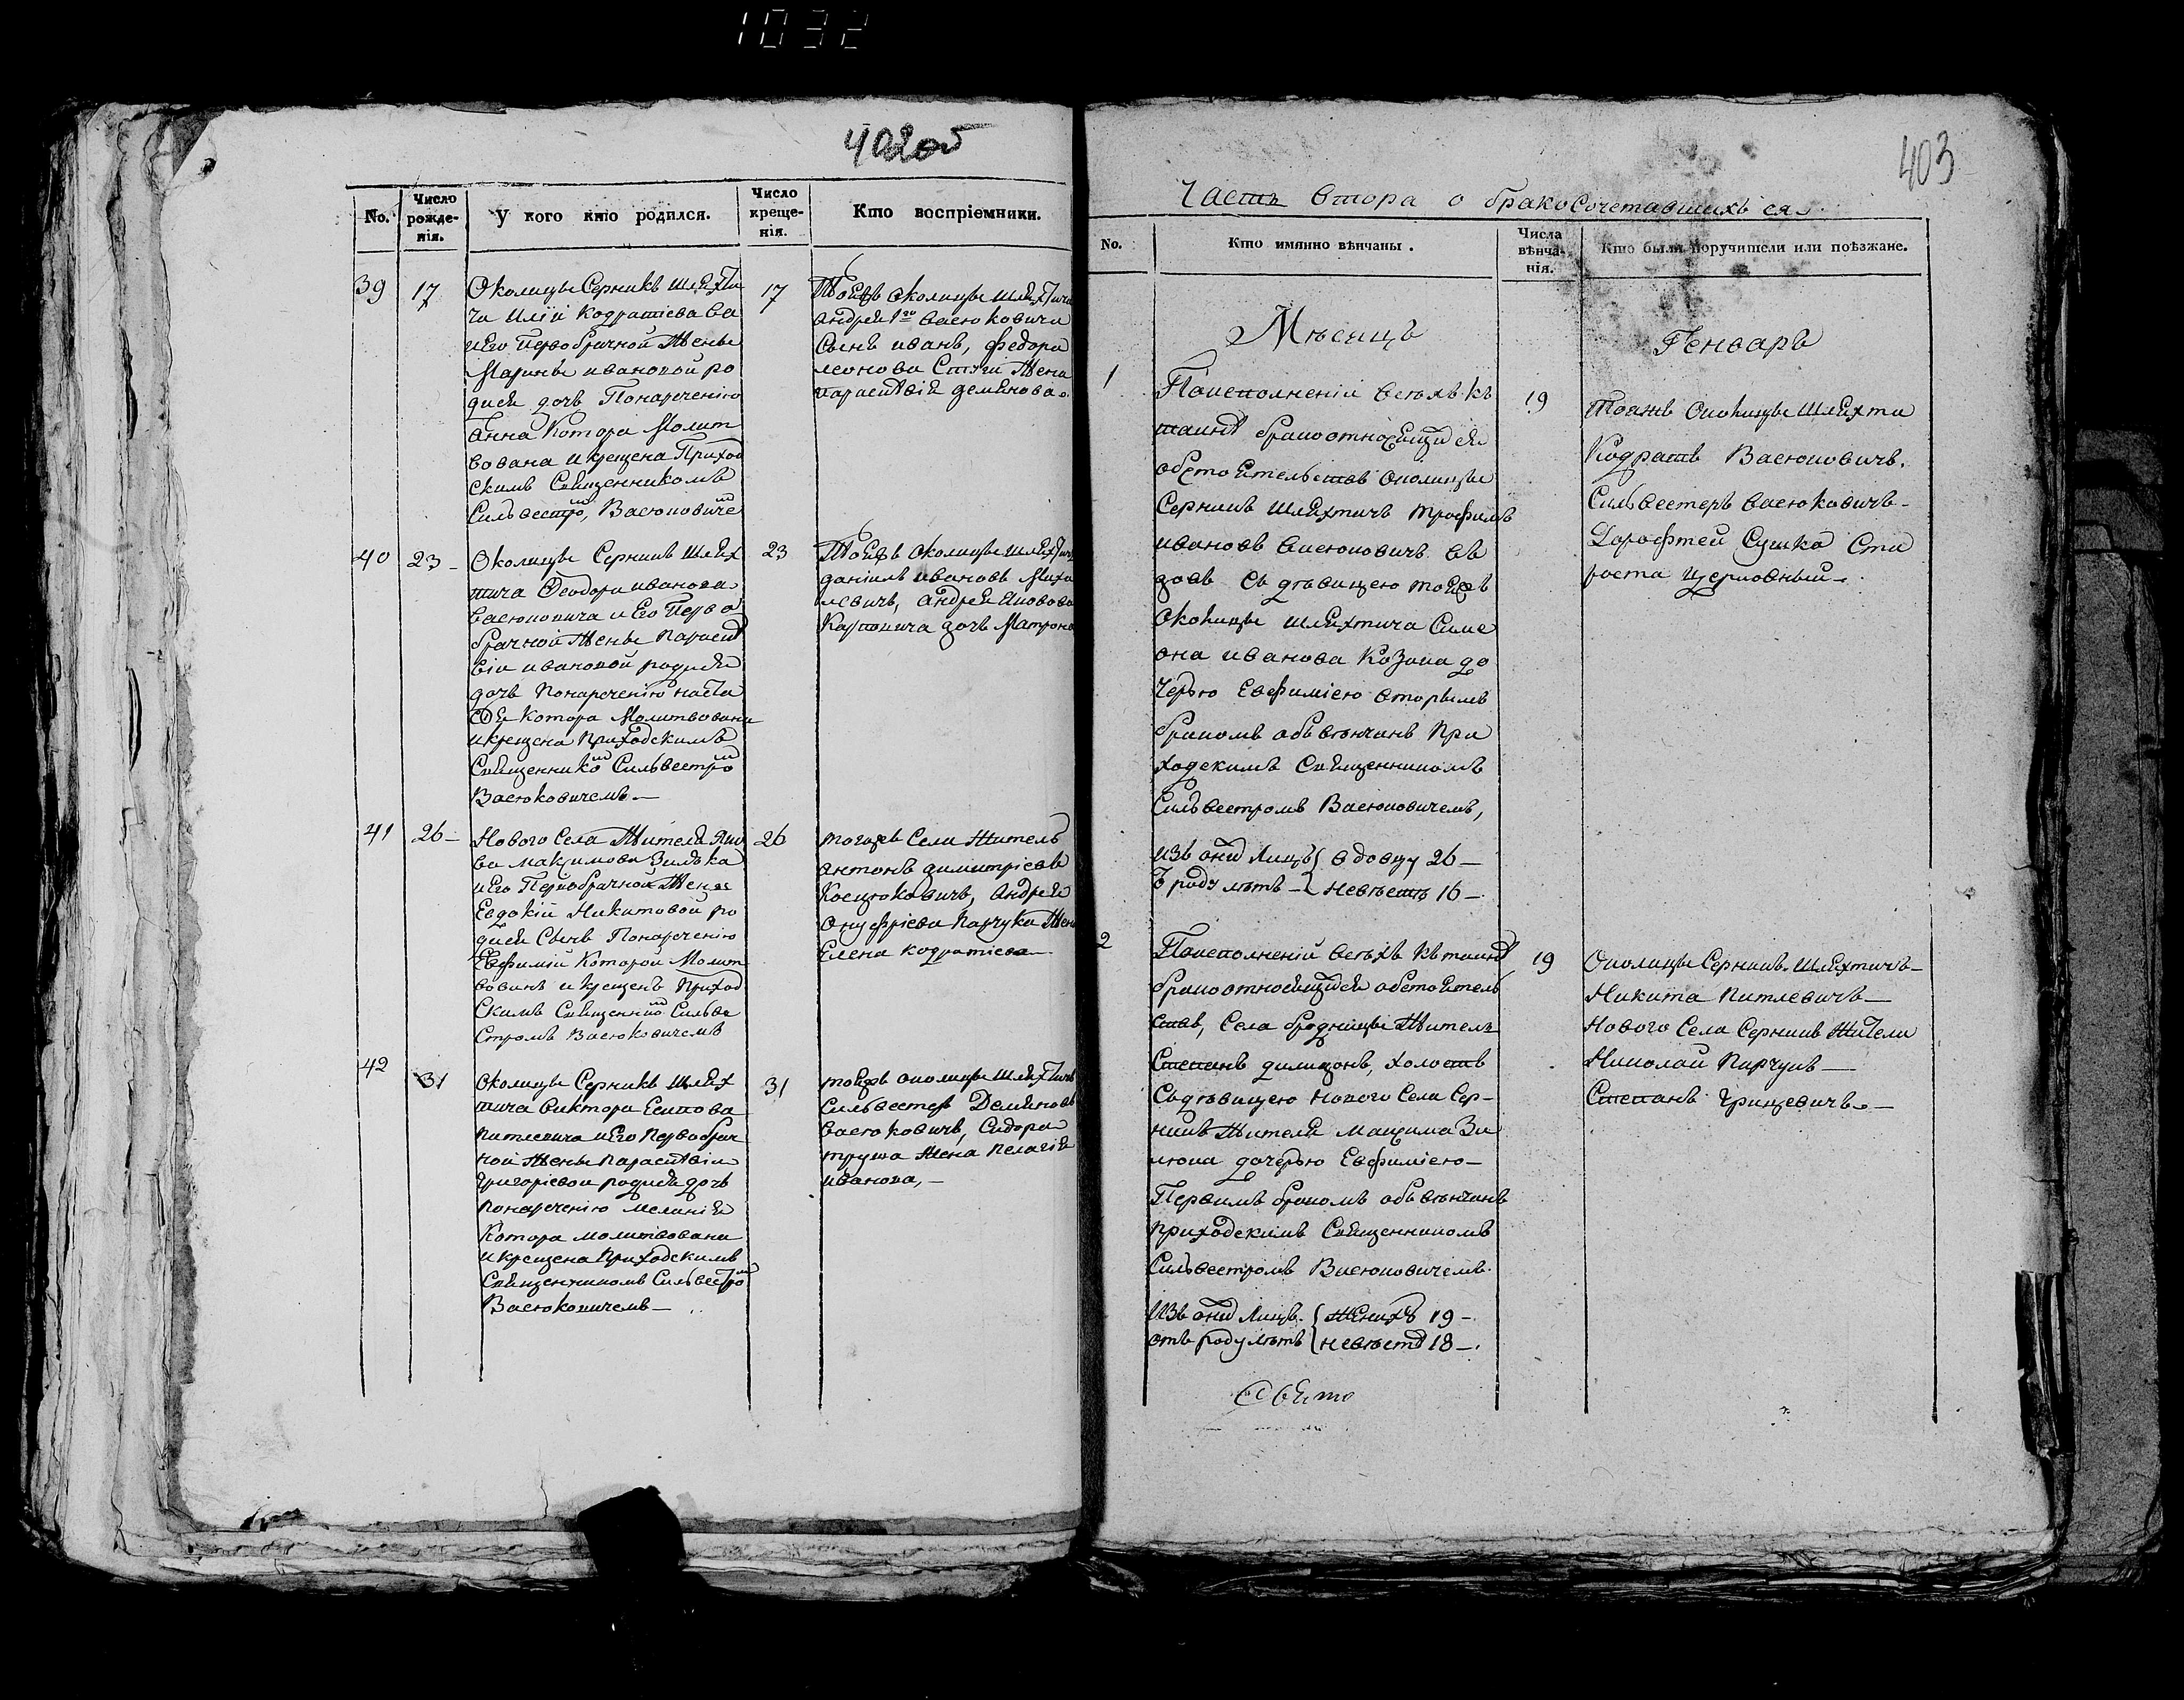 1032
402об
No.
Число рожде-нія.
У кого кто родился.
Число креще-нія.
Кто воспріемники.
39
17
Околицы Серникъ шляхти
ча Иліи Кодратіева Ва
и Его Первобрачной Жены
Марины ивановой ро
дися дочъ Понареченію
анна Котора Молит
вована и крещена Приход
скимъ Священникомъ
Сильвестро, Васюковиче
17
Тояжъ околицы шляхтича
андрея 1го Васюковича
Сынъ иванъ, федора
леонова Жена
параскѣвія демянова
40
23
Околицы Серникъ шлях
тича Ѳеодора иванова
Васюковича и Его Перво
брачной Жены Параске
віи ивановой родися
дочъ Понареченію наста
сѣя Котора Молитвована
и крещена Приходскимъ
Священнико Сильвестро
Васюковичемъ
23
Тояжъ Околицы шляхтич
даніилъ ивановъ Миха
левичъ, андрея
Карповича дочъ Матрона
41
26
Нового Села Жителя Яко
ва максимова Зилька
и Его Первобрачной Жены
Евдокіи Никитовой ро
дися Сынъ Понареченію
Евфимій Которой Молит
вованъ и крещенъ Приход
Скимъ Священнико Сильве
Стромъ Васюковичемъ
26
тогожъ Села Житель
антонъ димитріевъ
Косцюковичъ, Андрея
Онуфріева Парчука Жена
Елена кодратіева
42
31
Околицы Серникъ шлях
тича Виктора Есипова
Питлевича и Его Первобрач
ной Жены Параскѣвіи
Григоріевой родися дочъ
Понареченію меланія
Котора молитвована
и крещена Приходскимъ
Священникомъ Сильвестро
Васюковичемъ
31
тояжъ околицы шляхтичъ
Сильвестеръ Демяновъ
Васюковичъ, Сидора
труша Жена Пелагія
иванова,
403
Часть Втора о бракосочетавшихъ ся
No.
Кто имянно вѣнчаны.
Числа вѣнча-нія.
Кто были поручители или поѣзжане.
Мѣсяцъ
Генваръ
1
Поисполненіи всѣхъ къ
таин бракоотносящи ся
обстоятельствъ околицы
Серникъ шляхтичъ трофимъ
ивановъ Васюковичъ в
довъ Съ дѣвицею тояжъ
околицы шляхтича Симе
она иванова Козака до
черью Евфиміею вторымъ
бракомъ обвѣнчанъ При
ходскимъ Священникомъ
Сильвестромъ Васюковичемъ,
изъ они Лицъ { вдовцу 26
роду лѣтъ { невѣстѣ 16
19
Тояжъ Околицы шляхти
Кодратъ Васюковичъ.
Сильвестеръ Васюковичъ
Дорофтей Сушко Ста
роста церковный
2
Поисполненіи всѣхъ къ таин
бракоотносящися обстоятель
ствъ, Села бродницы Житель
Степанъ димидонъ, холостъ
Съ дѣвицею нового Села Сер-
никъ Жителя Максима Зи
люка дочерью Евфиміею
Первимъ бракомъ обвѣнчанъ
приходскимъ Священникомъ
Сильвестромъ Васюковичемъ.
Изъ они Лицъ { Жениху 19
отъ роду лѣтъ { невѣст 18
19
Околицы Серникъ Шляхтичъ
Никита Питлевичъ
Нового Села Серникъ Жители
Николай Парчукъ
Степанъ Грицевичъ